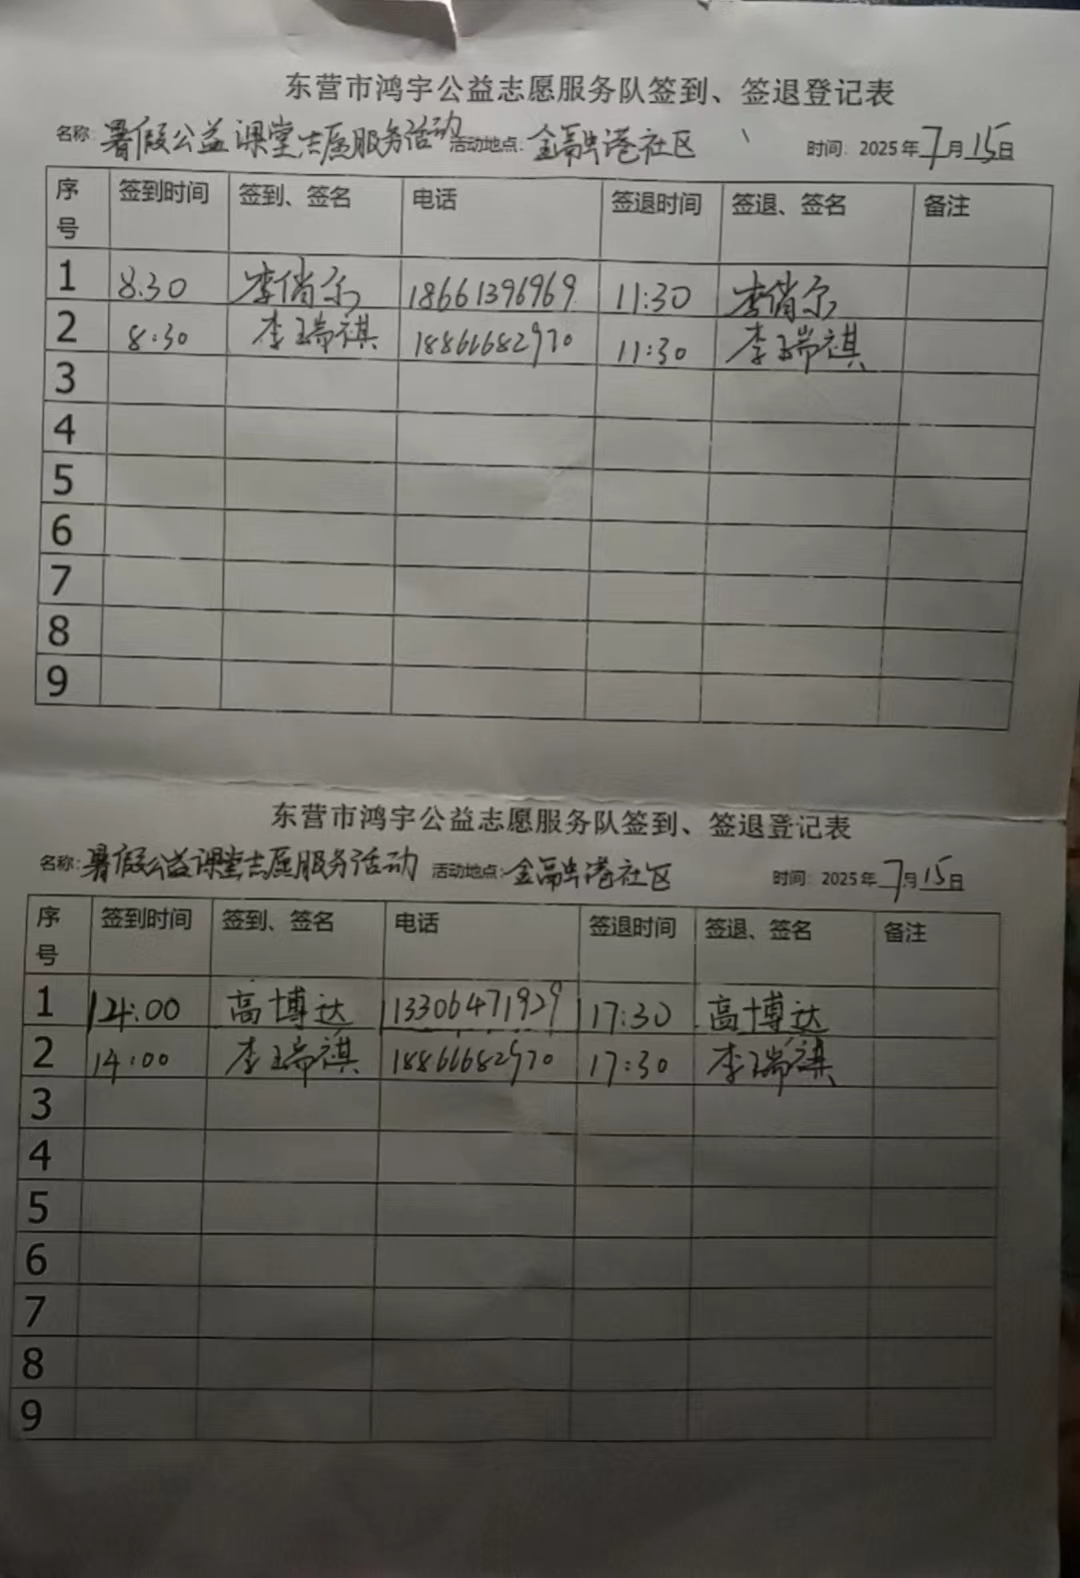 东营市鸿宇公益志愿服务队签到、签退登记表
名称：暑假公益课堂志愿服务活动 活动地点：金融港社区 时间：2025年7月15日
序号 签到时间 签到、签名 电话 签退时间 签退、签名 备注
1 8:30 李俏尔 18661396969 11:30 李俏尔
2 8:30 李瑞祺 18866682970 11:30 李瑞祺
3
4
5
6
7
8
9
东营市鸿宇公益志愿服务队签到、签退登记表
名称：暑假公益课堂志愿服务活动 活动地点：金融港社区 时间：2025年7月15日
序号 签到时间 签到、签名 电话 签退时间 签退、签名 备注
1 14:00 高博达 13306471929 17:30 高博达
2 14:00 李瑞祺 18866682970 17:30 李瑞祺
3
4
5
6
7
8
9